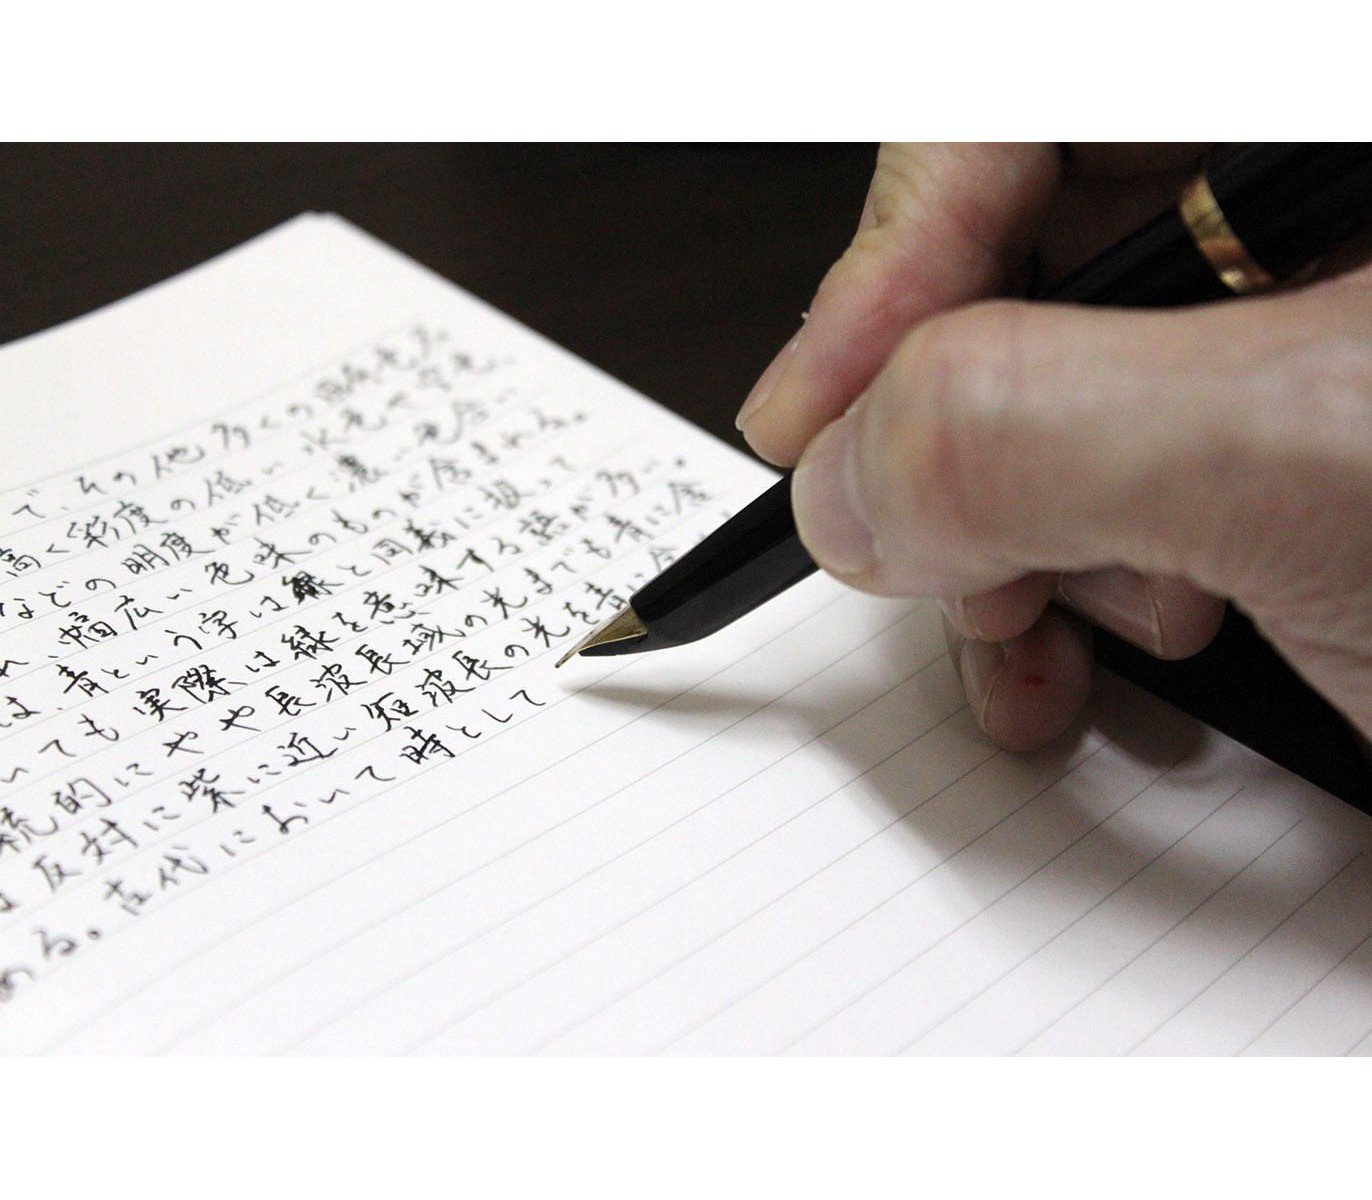 で、その他多くの
高く彩度の低い水色や空色、
などの明度が低く濃い色合い
れ、幅広い色味のものが含まれる。
は、青という字は緑と同義に扱って
いても実際は緑を意味する語が多い。
統的にやや長波長域の光までも青に含
反対に紫に近い短波長の光を青に含
める。古代において時として